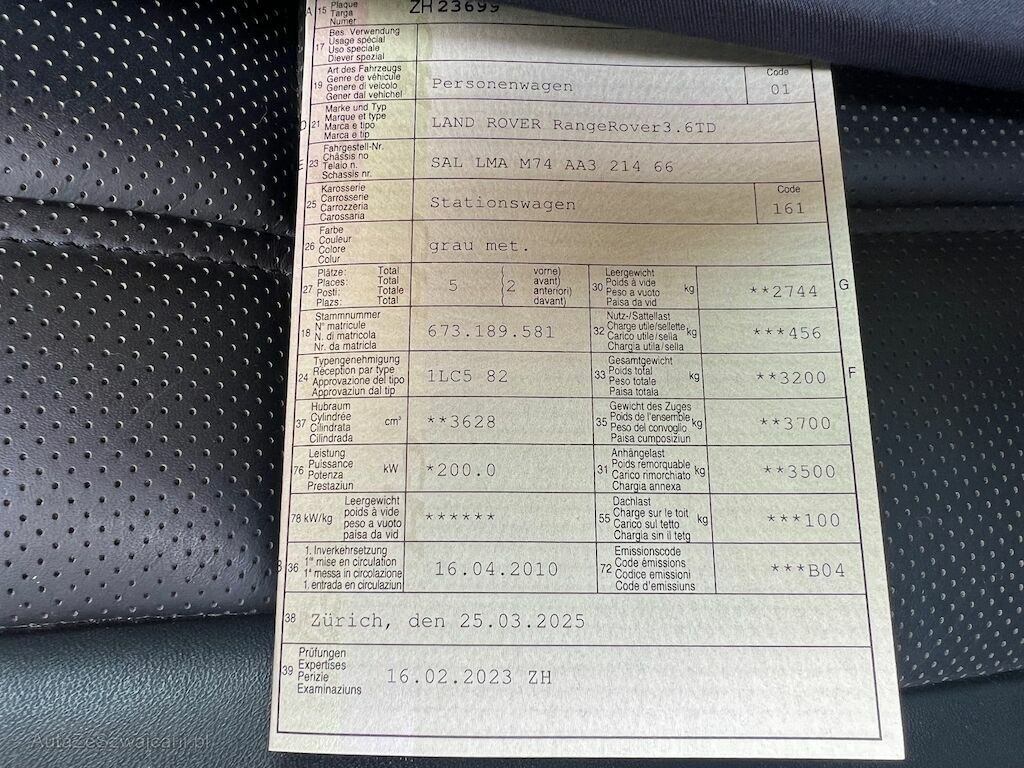 A 15 Plaque ZH 23699
Targa
Numer
17 Bes. Verwendung
Usage spécial
Uso speciale
Diever spezial
19 Art des Fahrzeugs
Genre de véhicule
Genere di veicolo
Gener dal vehichel
Personenwagen
Code
01
D 21 Marke und Typ
Marque et type
Marca e tipo
Marca e tip
LAND ROVER RangeRover3.6TD
E 23 Fahrgestell-Nr.
Châssis no
Telaio n.
Schassis nr.
SAL LMA M74 AA3 214 66
25 Karosserie
Carrosserie
Carrozzeria
Carossaria
Stationswagen
Code
161
26 Farbe
Couleur
Colore
Colur
grau met.
27 Plätze: Total
Places: Total
Posti: Totale
Plazs: Total
5 (2 vorne)
avant)
anteriori)
davant)
30 Leergewicht
Poids à vide
Peso a vuoto
Paisa da vid
kg **2744 G
18 Stammnummer
N° matricule
N. di matricola
Nr. da matricla
673.189.581
32 Nutz-/Sattellast
Charge utile/sellette
Carico utile/sella
Chargia utila/sella
kg ***456
24 Typengenehmigung
Réception par type
Approvazione del tipo
Approvaziun dal tip
1LC5 82
33 Gesamtgewicht
Poids total
Peso totale
Paisa totala
kg **3200 F
37 Hubraum
Cylindrée
Cilindrata
Cilindrada
cm³ **3628
35 Gewicht des Zuges
Poids de l'ensemble
Peso del convoglio
Paisa cumposiziun
kg **3700
76 Leistung
Puissance
Potenza
Prestaziun
kW *200.0
31 Anhängelast
Poids remorquable
Carico rimorchiato
Chargia annexa
kg **3500
78 kW/kg Leergewicht
poids à vide
peso a vuoto
paisa da vid
******
55 Dachlast
Charge sur le toit
Carico sul tetto
Chargia sin il tetg
kg ***100
B 36 1. Inverkehrsetzung
1re mise en circulation
1a messa in circolazione
1. entrada en circulaziun
16.04.2010
72 Emissionscode
Code émissions
Codice emissioni
Code d'emissiuns
***B04
38 Zürich, den 25.03.2025
39 Prüfungen
Expertises
Perizie
Examinaziuns
16.02.2023 ZH
AutaZeSzwajcarii.pl